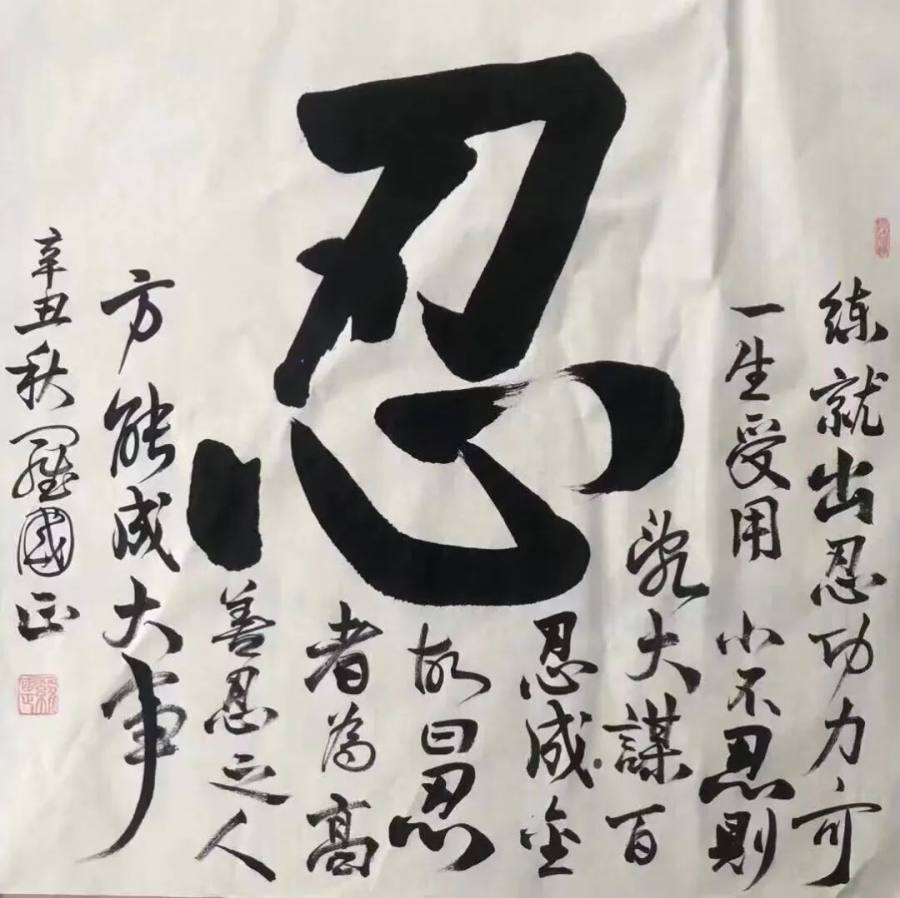 忍
練就出忍功力可
一生受用小不忍則
亂大謀百
忍成金
故曰忍
者為高
善忍之人
方能成大事
辛丑秋羅國正